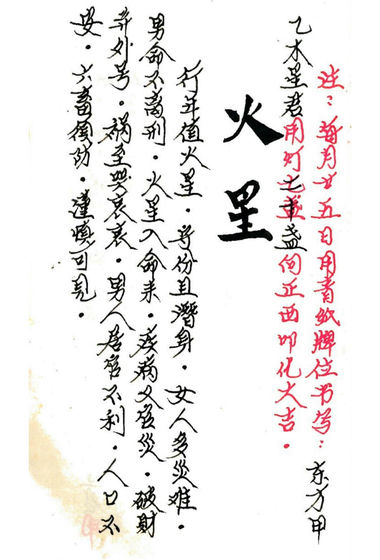 注：每月廿五日用青纸牌位书写：东方甲
乙木星君用灯 十盏向正西叩化大吉。
火星
行年值火星。守份且潛身。女人多災难。
男命不离刑。火星入命来。疾病又官災。破财
。祸至哭哀哀。男人居官不利。人口不
安。六畜须防。謹慎可免。